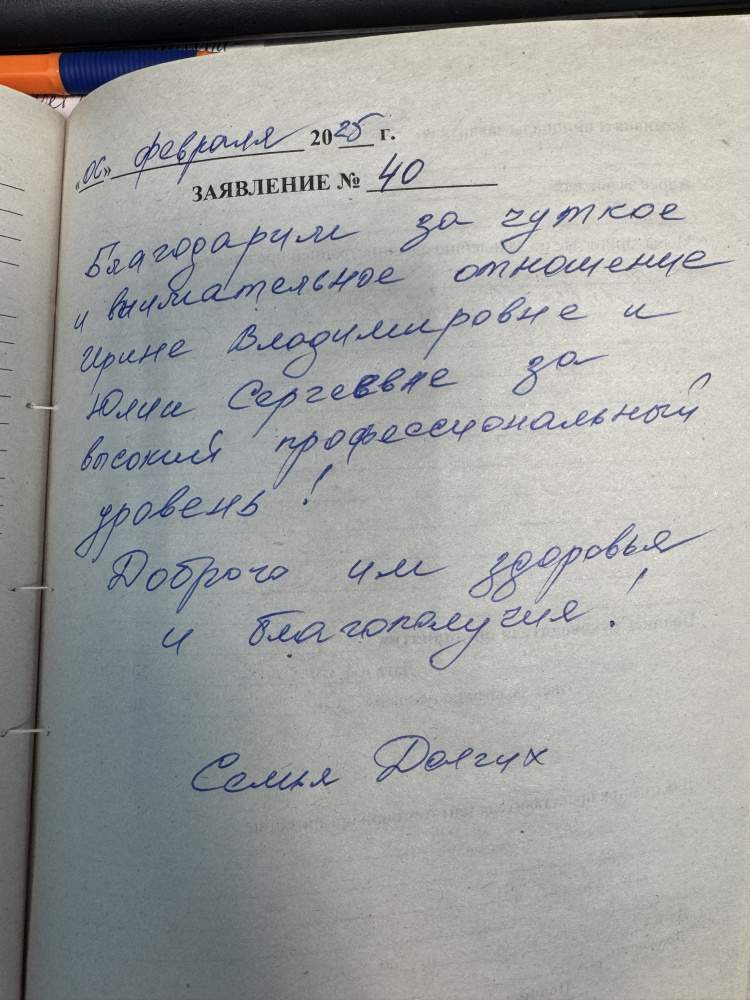 «06» февраля 2025 г.
ЗАЯВЛЕНИЕ № 40
Благодарим за чуткое
и внимательное отношение
Ирине Владимировне и
Юлии Сергеевне за
высокий профессиональный
уровень!
Доброго им здоровья
и благополучия!
Семья Долгих